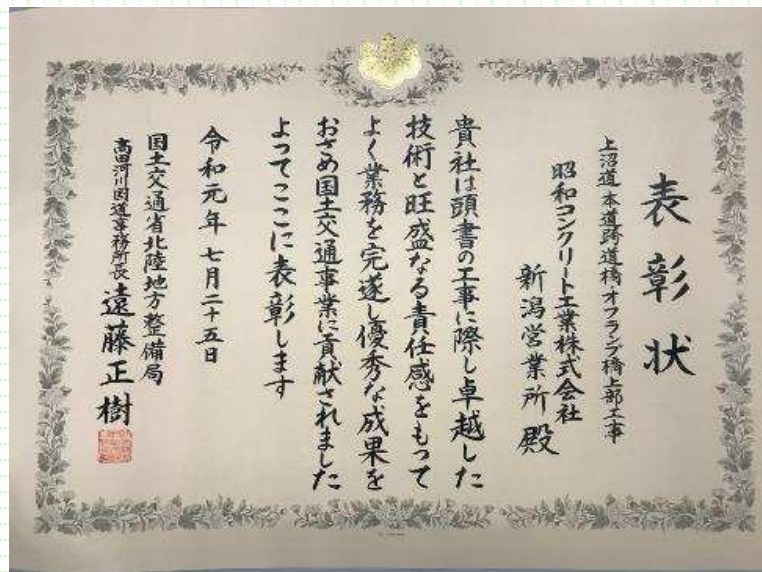 表彰状
上沼道本道跨道橋オフランプ橋上部工事
昭和コンクリート工業株式会社
新潟営業所殿
貴社は頭書の工事に際し卓越した
技術と旺盛なる責任感をもって
よく業務を完遂し優秀な成果を
おさめ国土交通事業に貢献されました
よってここに表彰します
令和元年七月二十五日
国土交通省北陸地方整備局
高田河川国道事務所長 遠藤正樹